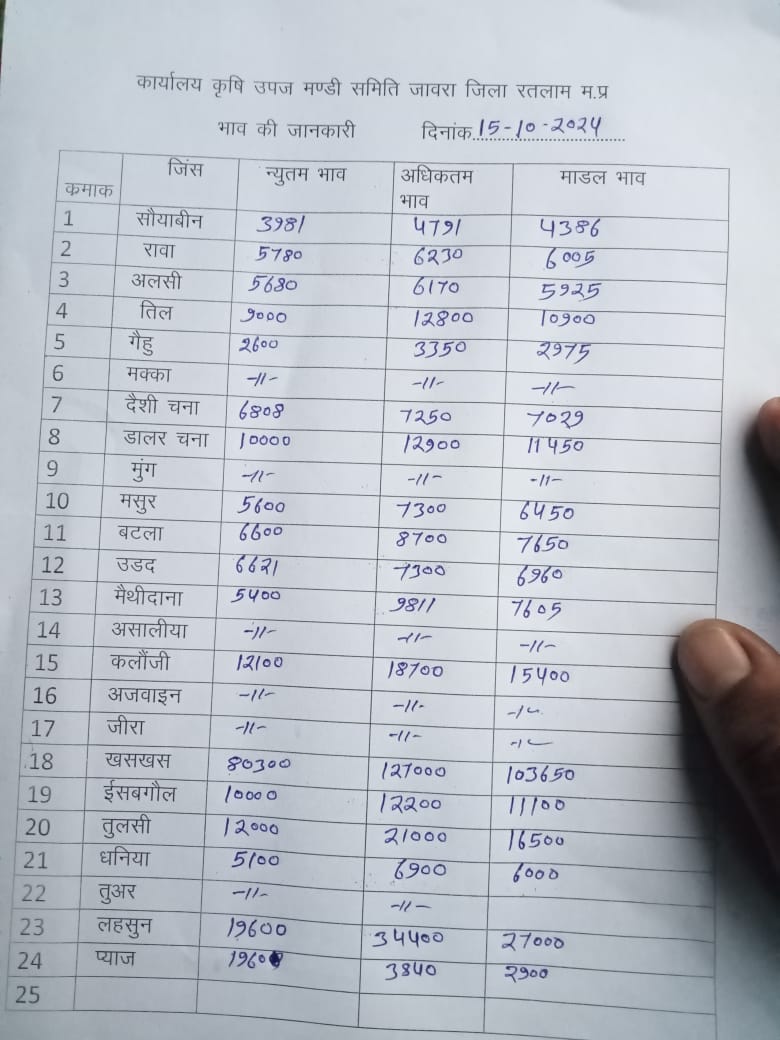 कार्यालय कृषि उपज मण्डी समिति जावरा जिला रतलाम म.प्र
भाव की जानकारी दिनांक 15-10-2024
कमाक जिंस न्युतम भाव अधिकतम भाव माडल भाव
1 सौयाबीन 3981 4791 4386
2 रावा 5780 6230 6005
3 अलसी 5680 6170 5925
4 तिल 9000 12800 10900
5 गैहु 2600 3350 2975
6 मक्का -11- -11- -11-
7 दैशी चना 6808 7250 7029
8 डालर चना 10000 12900 11450
9 मुंग -11- -11- -11-
10 मसुर 5600 7300 6450
11 बटला 6600 8700 7650
12 उडद 6621 7300 6960
13 मैथीदाना 5400 9811 7605
14 असालीया -11- -11- -11-
15 कलौंजी 12100 18700 15400
16 अजवाइन -11- -11-
17 जीरा -11- -11-
18 खसखस 80300 127000 103650
19 ईसबगौल 10000 12200 11100
20 तुलसी 12000 21000 16500
21 धनिया 5100 6900 6000
22 तुअर -11- -11-
23 लहसुन 19600 34400 27000
24 प्याज 1960 3840 2900
25